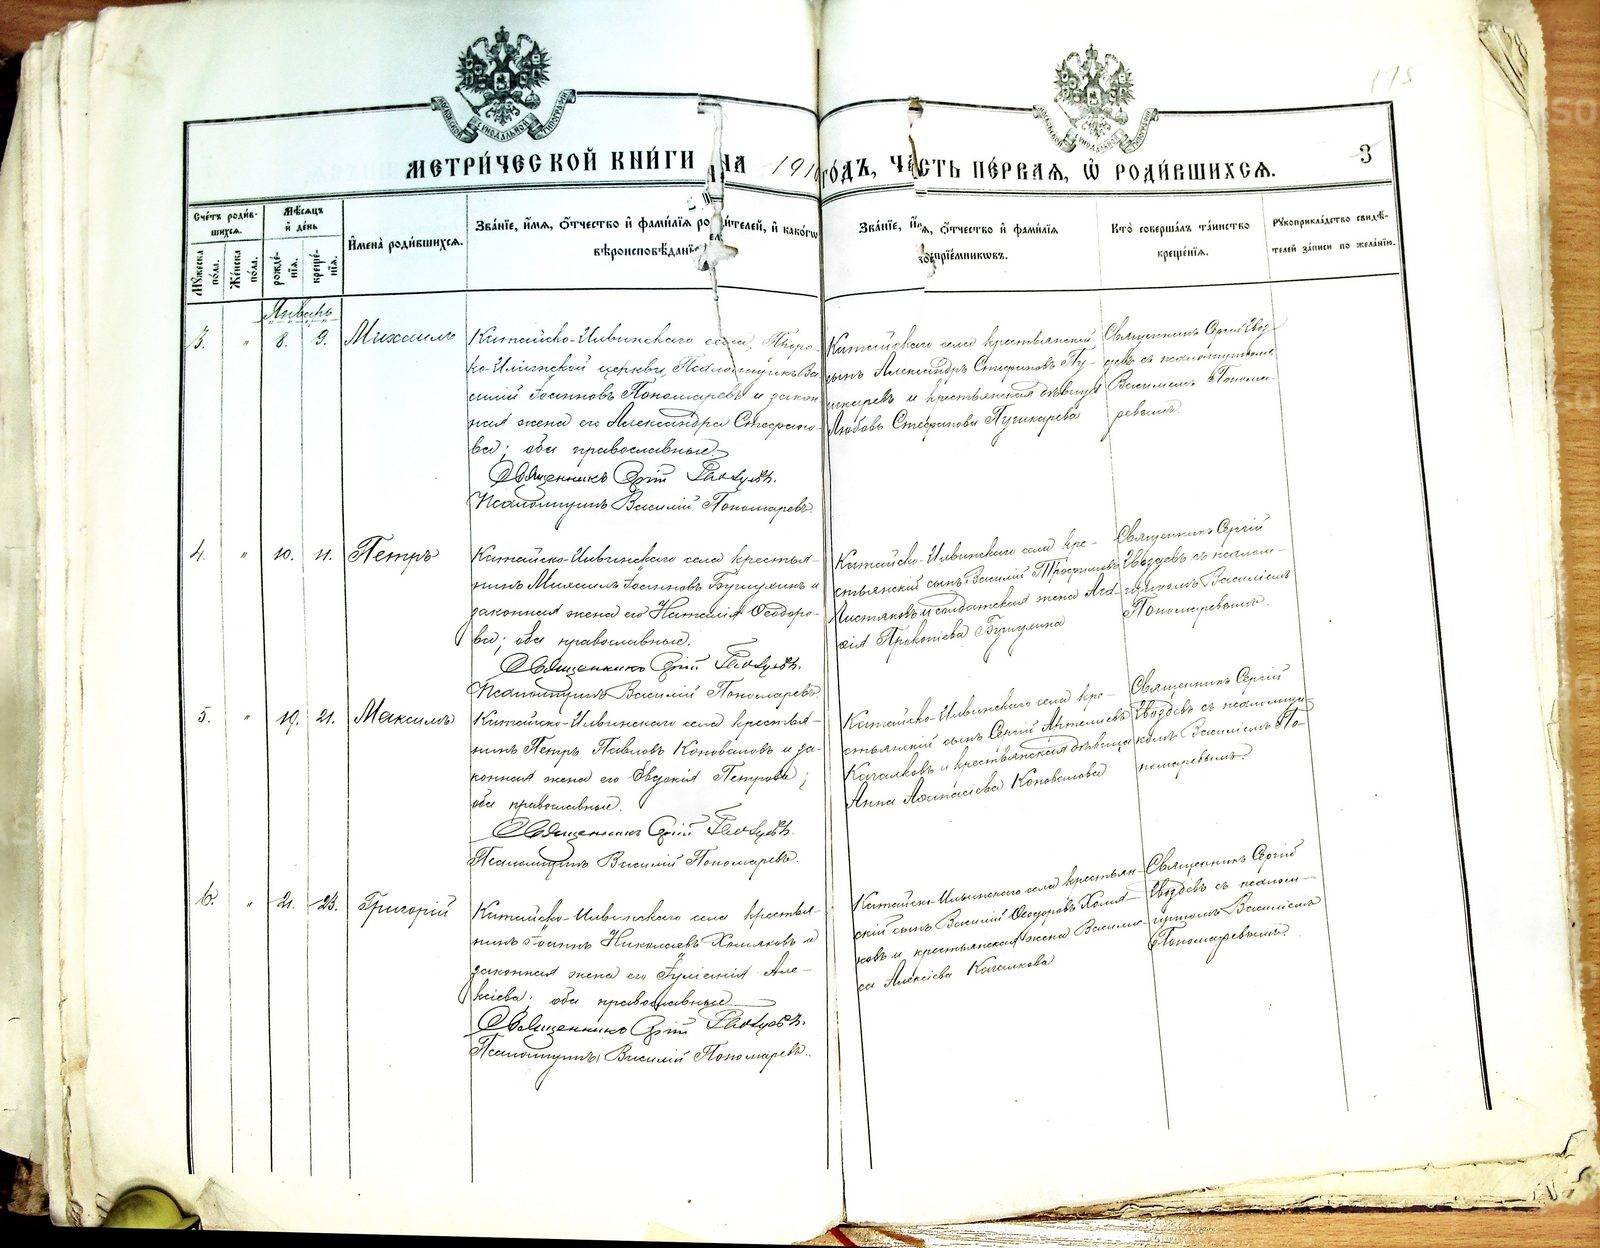 МОСКОВСКОЙ СѴНОДАЛЬНОЙ ТИПОГРАФІИ
МОСКОВСКОЙ СѴНОДАЛЬНОЙ ТИПОГРАФІИ
115
МЕТРИ́ЧЕСКОЙ КНИ́ГИ НА 1910 ГО́ДЪ, ЧА́СТЬ ПЕ́РВАЯ, Ѽ РОДИ́ВШИХСЯ.
3
Сче́тъ роди́в-
шихся.
Мѣ́сяцъ
и҆ де́нь
Мꙋ́жеска по́ла.
Же́нска по́ла.
рожде́-нїя.
креще́-нїя.
И҆мена̀ роди́вшихся.
Зва́нїе, и҆́мя, ѻ҆́тчество и҆ фами́лїя роди́телей, и҆ како́гѡ
вѣроисповѣ́данїя.
Зва́нїе, и҆́мя, ѻ҆́тчество и҆ фами́лїя
воспрїе́мникѡвъ.
Кто̀ соверша́лъ та́инство
креще́нїя.
Рꙋкоприкла́дство свидѣ́-
телей за́писи по жела́нїю.
Январь
3. " 8. 9. Михаилъ
Китайско-Ильинскаго села,
ко-Ильинской церкви, Псаломщикъ Ва-
силій Іоанновъ Пономаревъ и закон-
ная жена его Александра Стефано-
ва; оба православные.
Священникъ Сергій Гвоздевъ.
Псаломщикъ Василій Пономаревъ.
Китайскаго села крестьянскій
сынъ Александръ Стефановъ Пу-
шкаревъ и крестьянская дѣвица
Любовь Стефанова Пушкарева
Священникъ Сергій Гвоз-
девъ съ псаломщикомъ
Василіемъ Понома-
ревымъ.
4. " 10. 11. Петръ
Китайско-Ильинскаго села крестья-
нинъ Михаилъ Іоанновъ и
законная жена его Наталія Ѳеодоро-
ва; оба православные.
Священникъ Сергій Гвоздевъ.
Псаломщикъ Василій Пономаревъ.
Китайско-Ильинскаго села кре-
стьянскій сынъ Василій Трофимовъ
и солдатская жена
Прокопіева
Священникъ Сергій
Гвоздевъ съ псалом-
щикомъ Василіемъ
Пономаревымъ.
5. " 19. 21. Максимъ
Китайско-Ильинскаго села крестья-
нинъ Петръ Павловъ Коноваловъ и за-
конная жена его Евдокія Петрова;
оба православные.
Священникъ Сергій Гвоздевъ.
Псаломщикъ Василій Пономаревъ.
Китайско-Ильинскаго села кре-
стьянскій сынъ Сергій
Качалковъ и крестьянская дѣвица
Анна Аѳанасіева Коновалова
Священникъ Сергій
Гвоздевъ съ псаломщи-
комъ Василіемъ По-
номаревымъ.
6. " 21. 23. Григорій
Китайско-Ильинскаго села крестья-
нинъ Іоаннъ Николаевъ Хомяковъ и
законная жена его Іуліанія Але-
ксіева. оба православные
Священникъ Сергій Гвоздевъ.
Псаломщикъ Василій Пономаревъ.
Китайско-Ильинскаго села крестьян-
скій сынъ Василій Ѳеодоровъ Хомя-
ковъ и крестьянская жена Василис-
са Алексіева Качалкова
Священникъ Сергій
Гвоздевъ съ псалом-
щикомъ Василіемъ
Пономаревымъ.